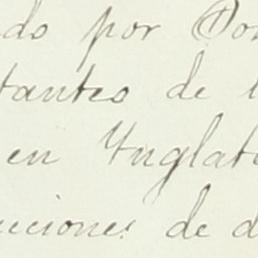 do por Don
tantes de l
en Ynglate
ciones de d